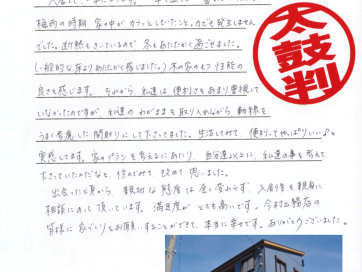 梅雨の時期、家の中がカラッとしていたこと。カビも発生しません
でした。断熱もきいているので冬もあたたかく過ごせました。
(一般的な床よりあたたかく感じました。)木の家のもつ性能の
良さを感じます。それから、私達は便利さをあまり重視して
いなかったのですが、私達のわがままを取り入れながら、動線を
うまく考慮した間取りにして下さいました。生活してみて、便利ってやっぱりいい♪と
実感してます。家のプランを考えるにあたり、自分達以上に、私達の事を考えて
下さっていたのだなと、住んでみて改めて思いました。
出会った頃から、親切な態度は全く変わらず、入居後も親身に
相談にのって頂いています。満足度がとても高いです。今村工務店の
皆様に家づくりをお願いすることができて、本当に幸せです。ありがとうございました。
太鼓判